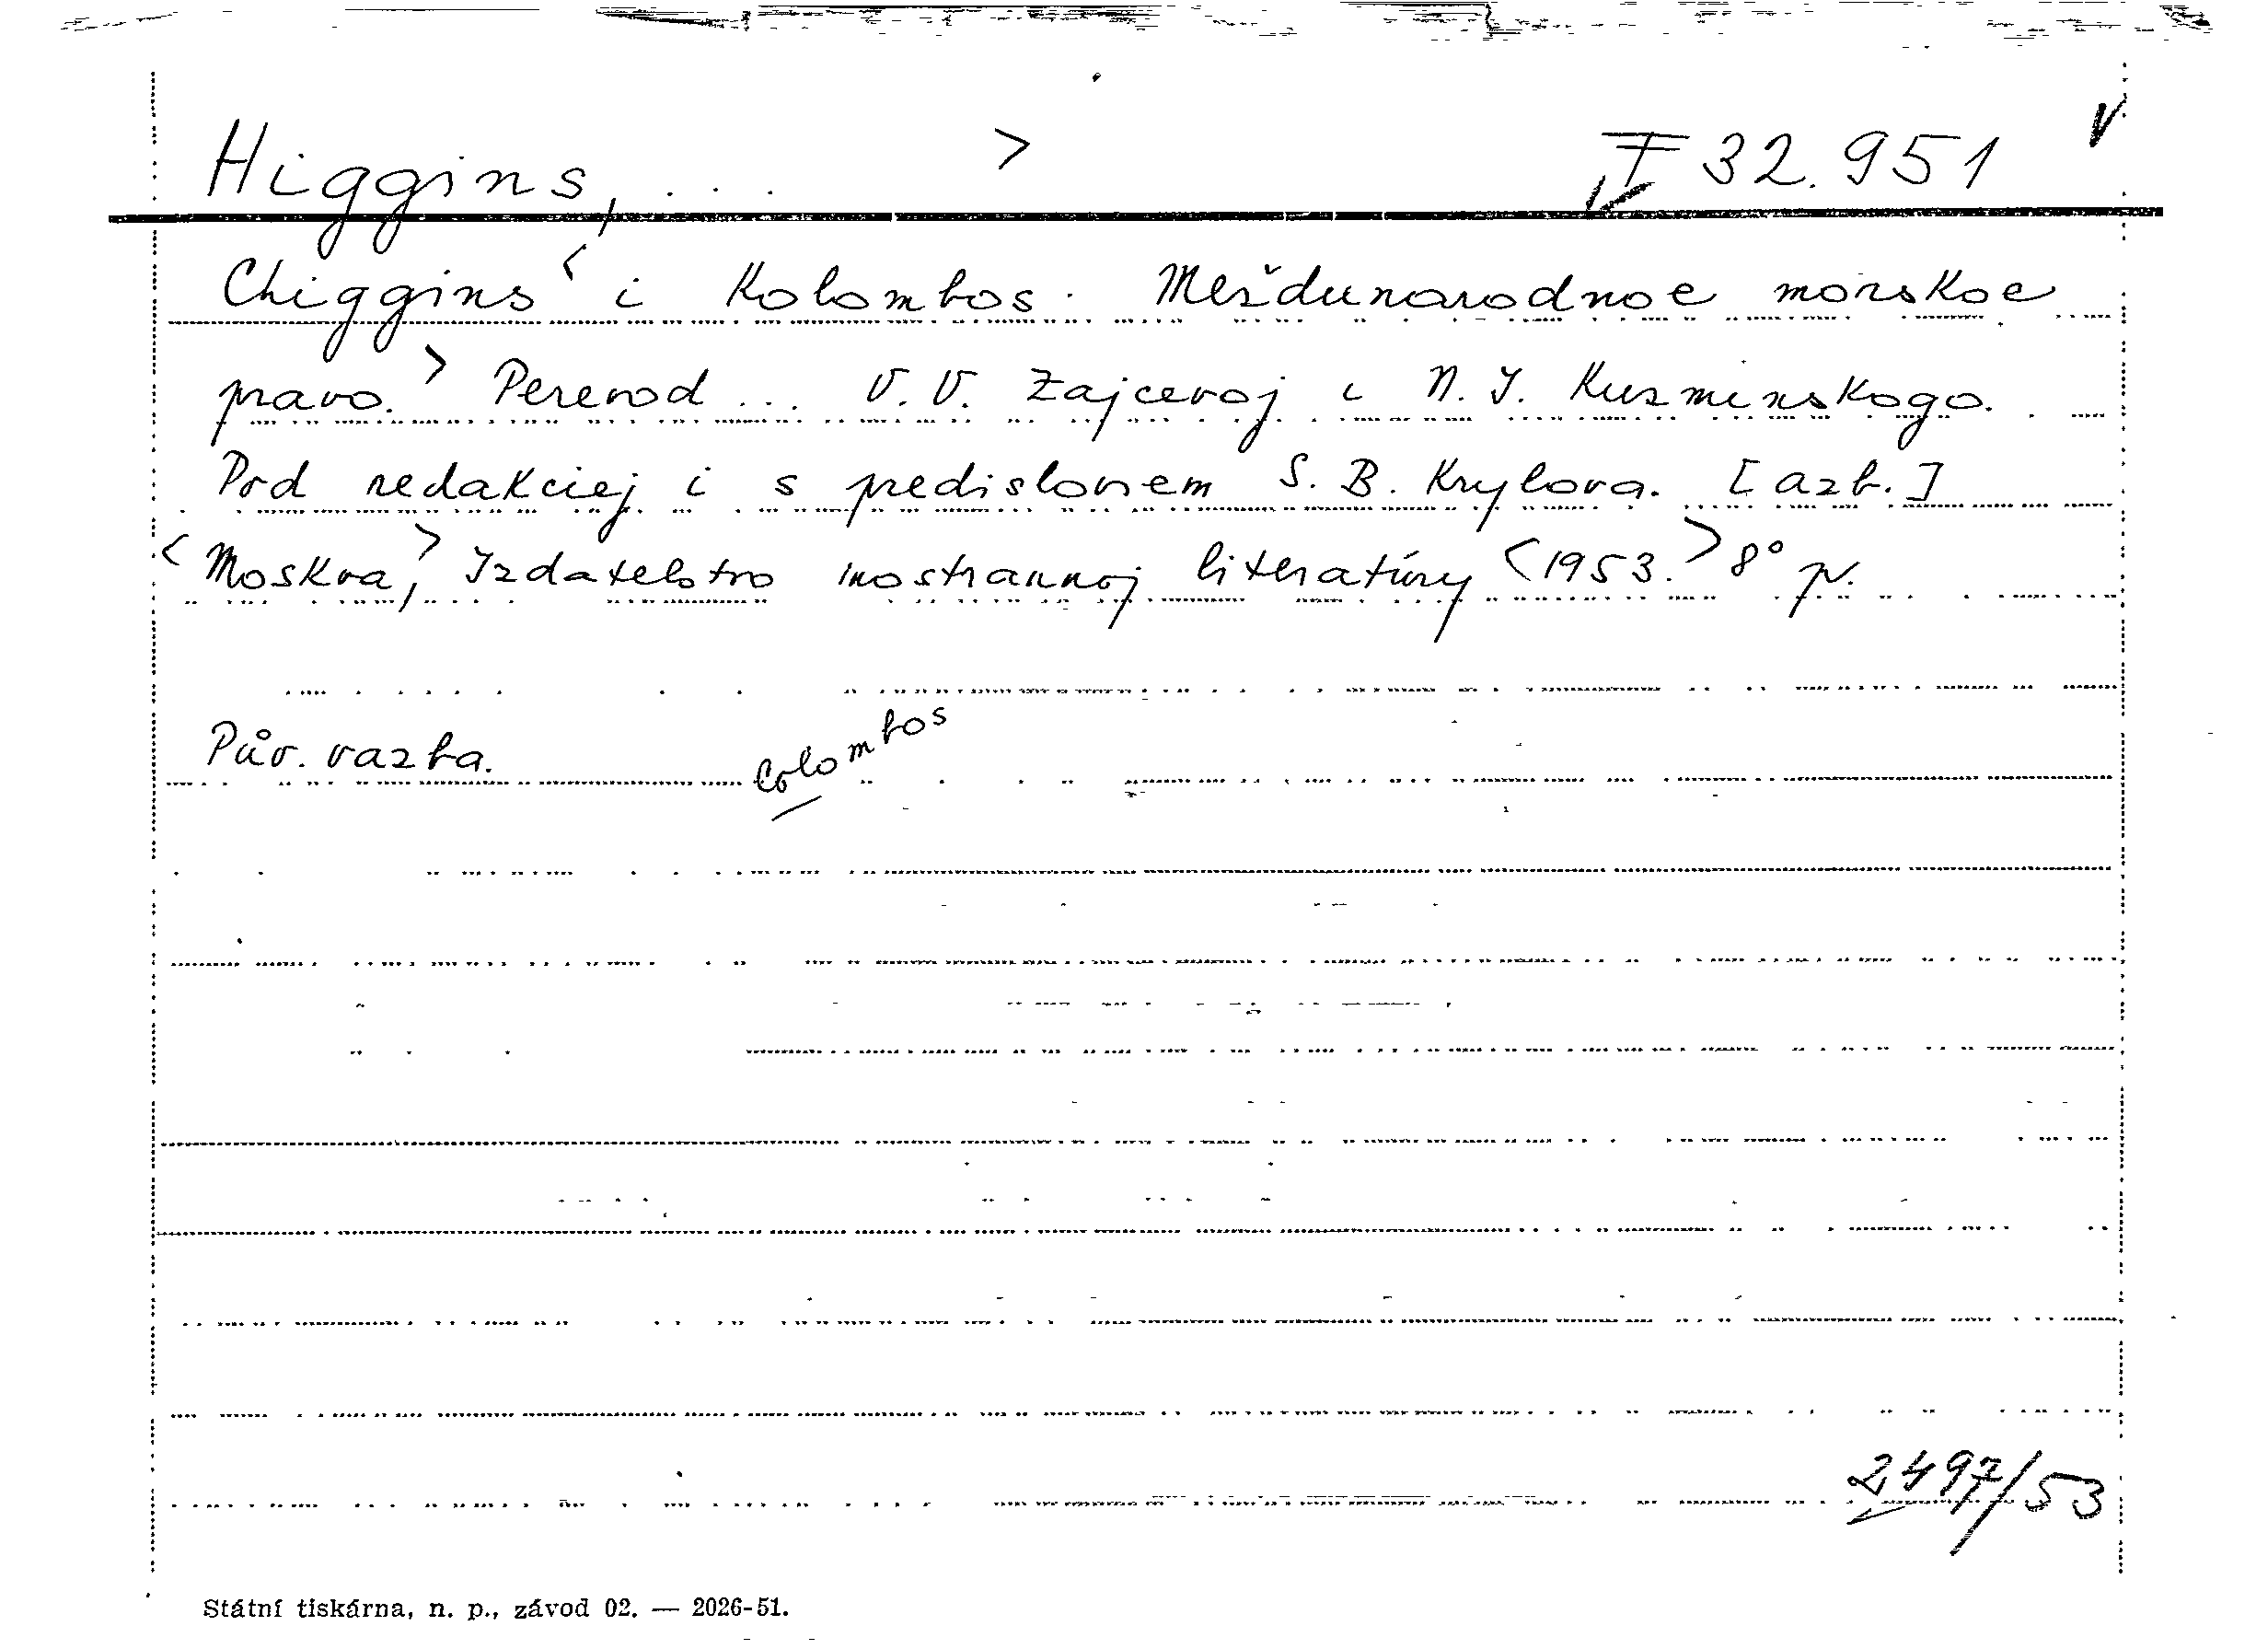 Higgins, ... > I 32.951
Chiggins < i Kolombos. Meždunarodnoe morskoe
pravo. > Perevod ... V. V. Zajcevoj i N. I. Kuzminskogo.
Pod redakciej i s predisloviem S. B. Krylova. [azb.]
< Moskva, > Izdatelstvo inostrannoj literatúry < 1953. > 8° p.
Pův. vazba.
Colombos
2497/53
Státní tiskárna, n. p., závod 02. — 2026-51.